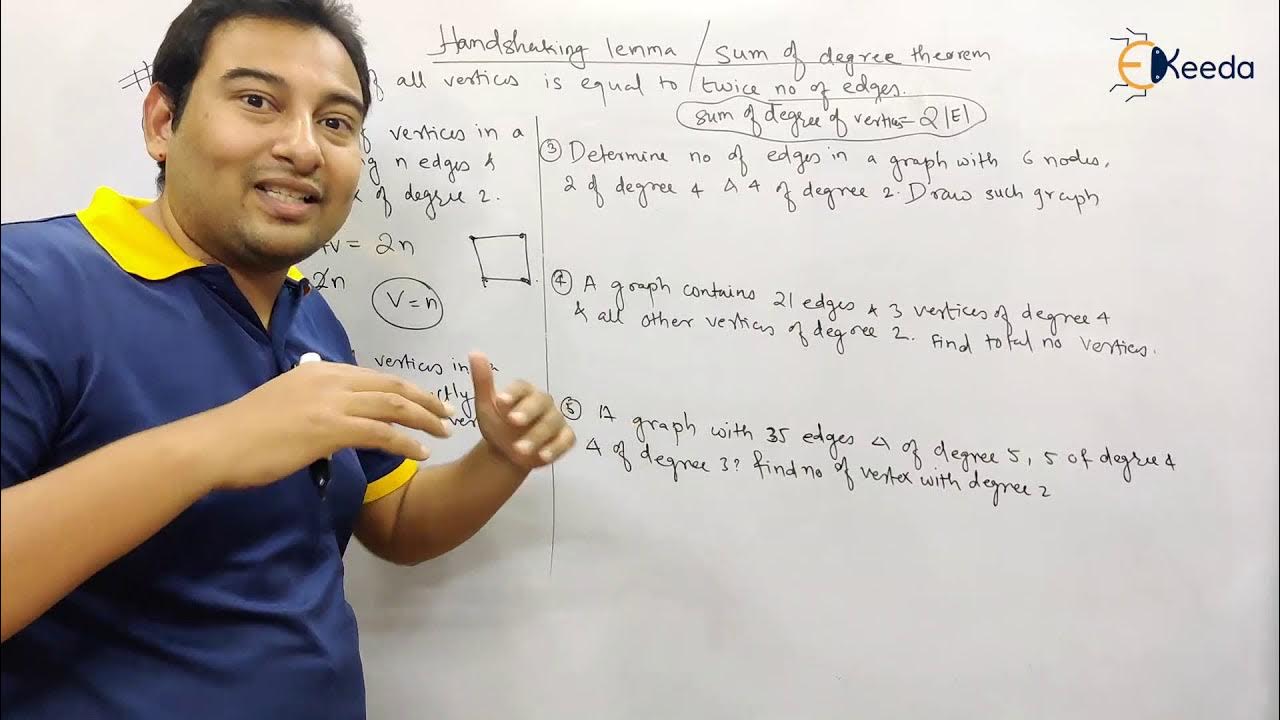 Handshaking lemma / Sum of degree theorem
EKeeda
# of all vertices is equal to twice no of edges.
Sum of degree of vertices = 2|E|
of vertices in a
n edges &
of degree 2.
V = 2n
2n
V = n
vertices in a
③ Determine no of edges in a graph with 6 nodes,
2 of degree 4 & 4 of degree 2. Draw such graph
④ A graph contains 21 edges & 3 vertices of degree 4
& all other vertices of degree 2. Find total no vertices.
⑤ A graph with 35 edges 4 of degree 5, 5 of degree 4
4 of degree 3? find no of vertex with degree 2